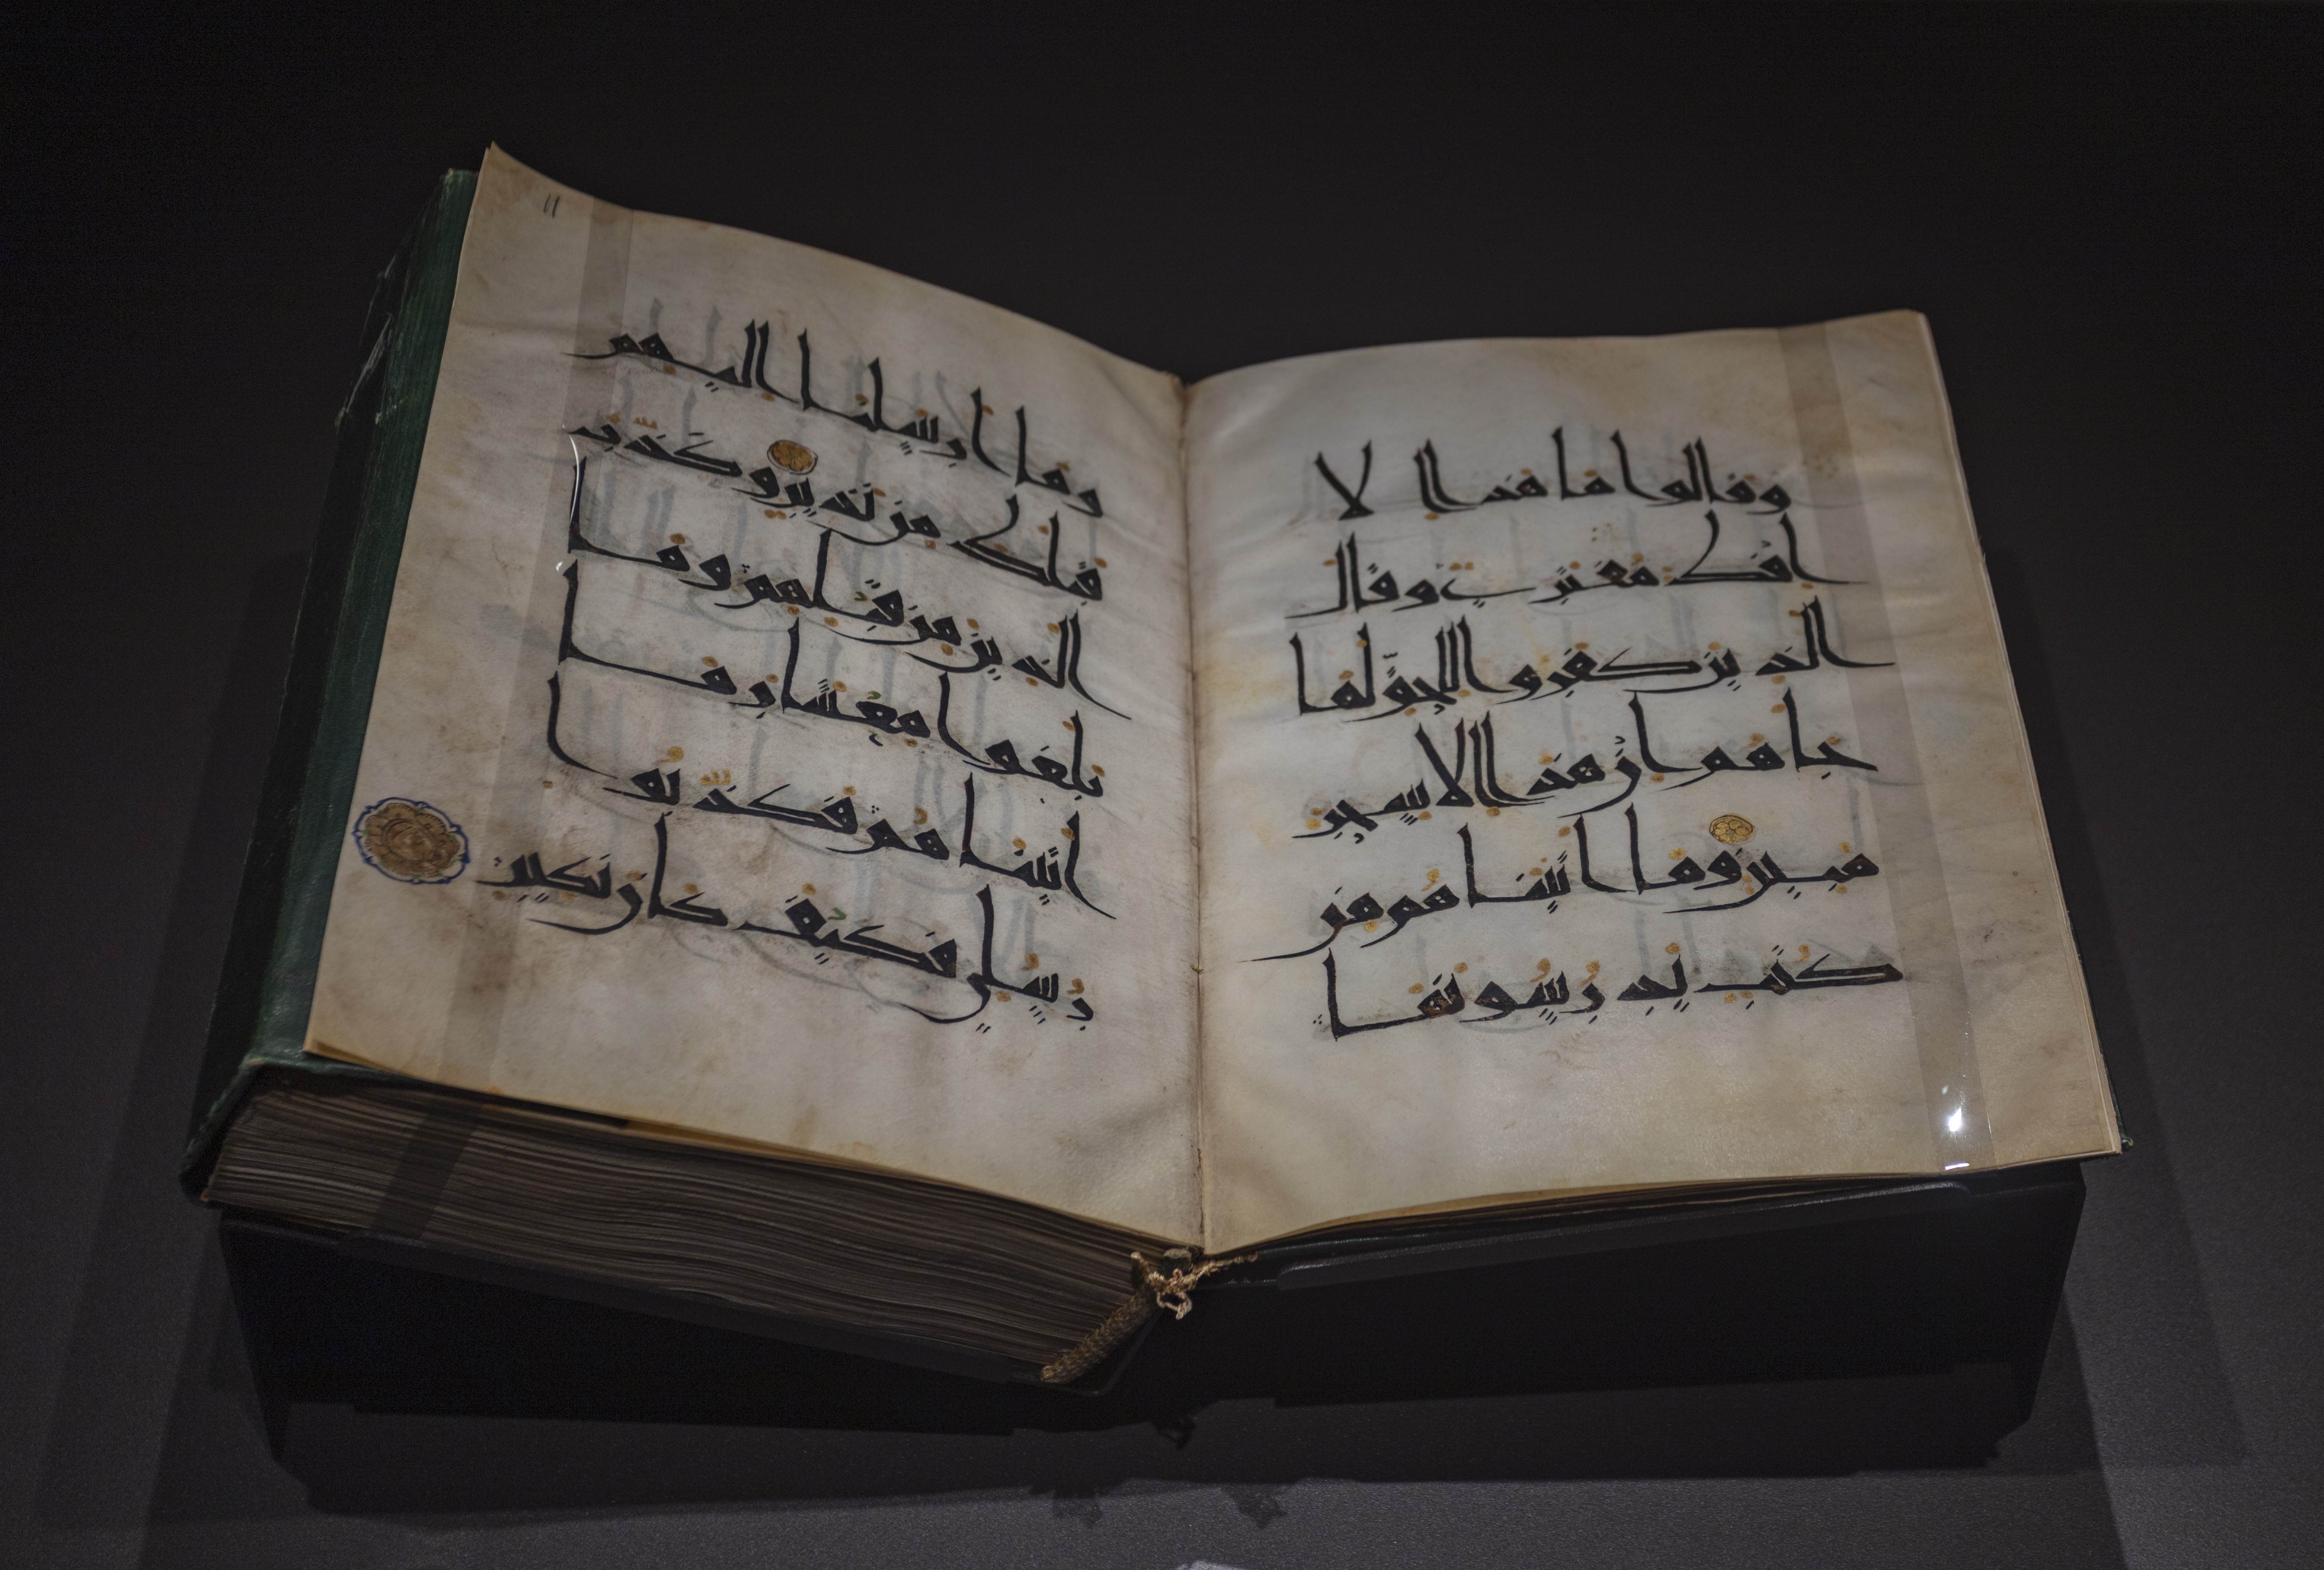 وقالوا ما هذا الا
افك مفترى وقال
الذين كفروا للحق لما
جاهم ان هذا الا سحر
مبين وما اتينا هم من
كتب يدرسونها
١١
وما ارسلنا اليهم
قبلك من نذير وكذب
الذين من قبلهم وما
بلغوا معشار ما
اتينا هم فكذبوا
رسلي فكيف كان نكير